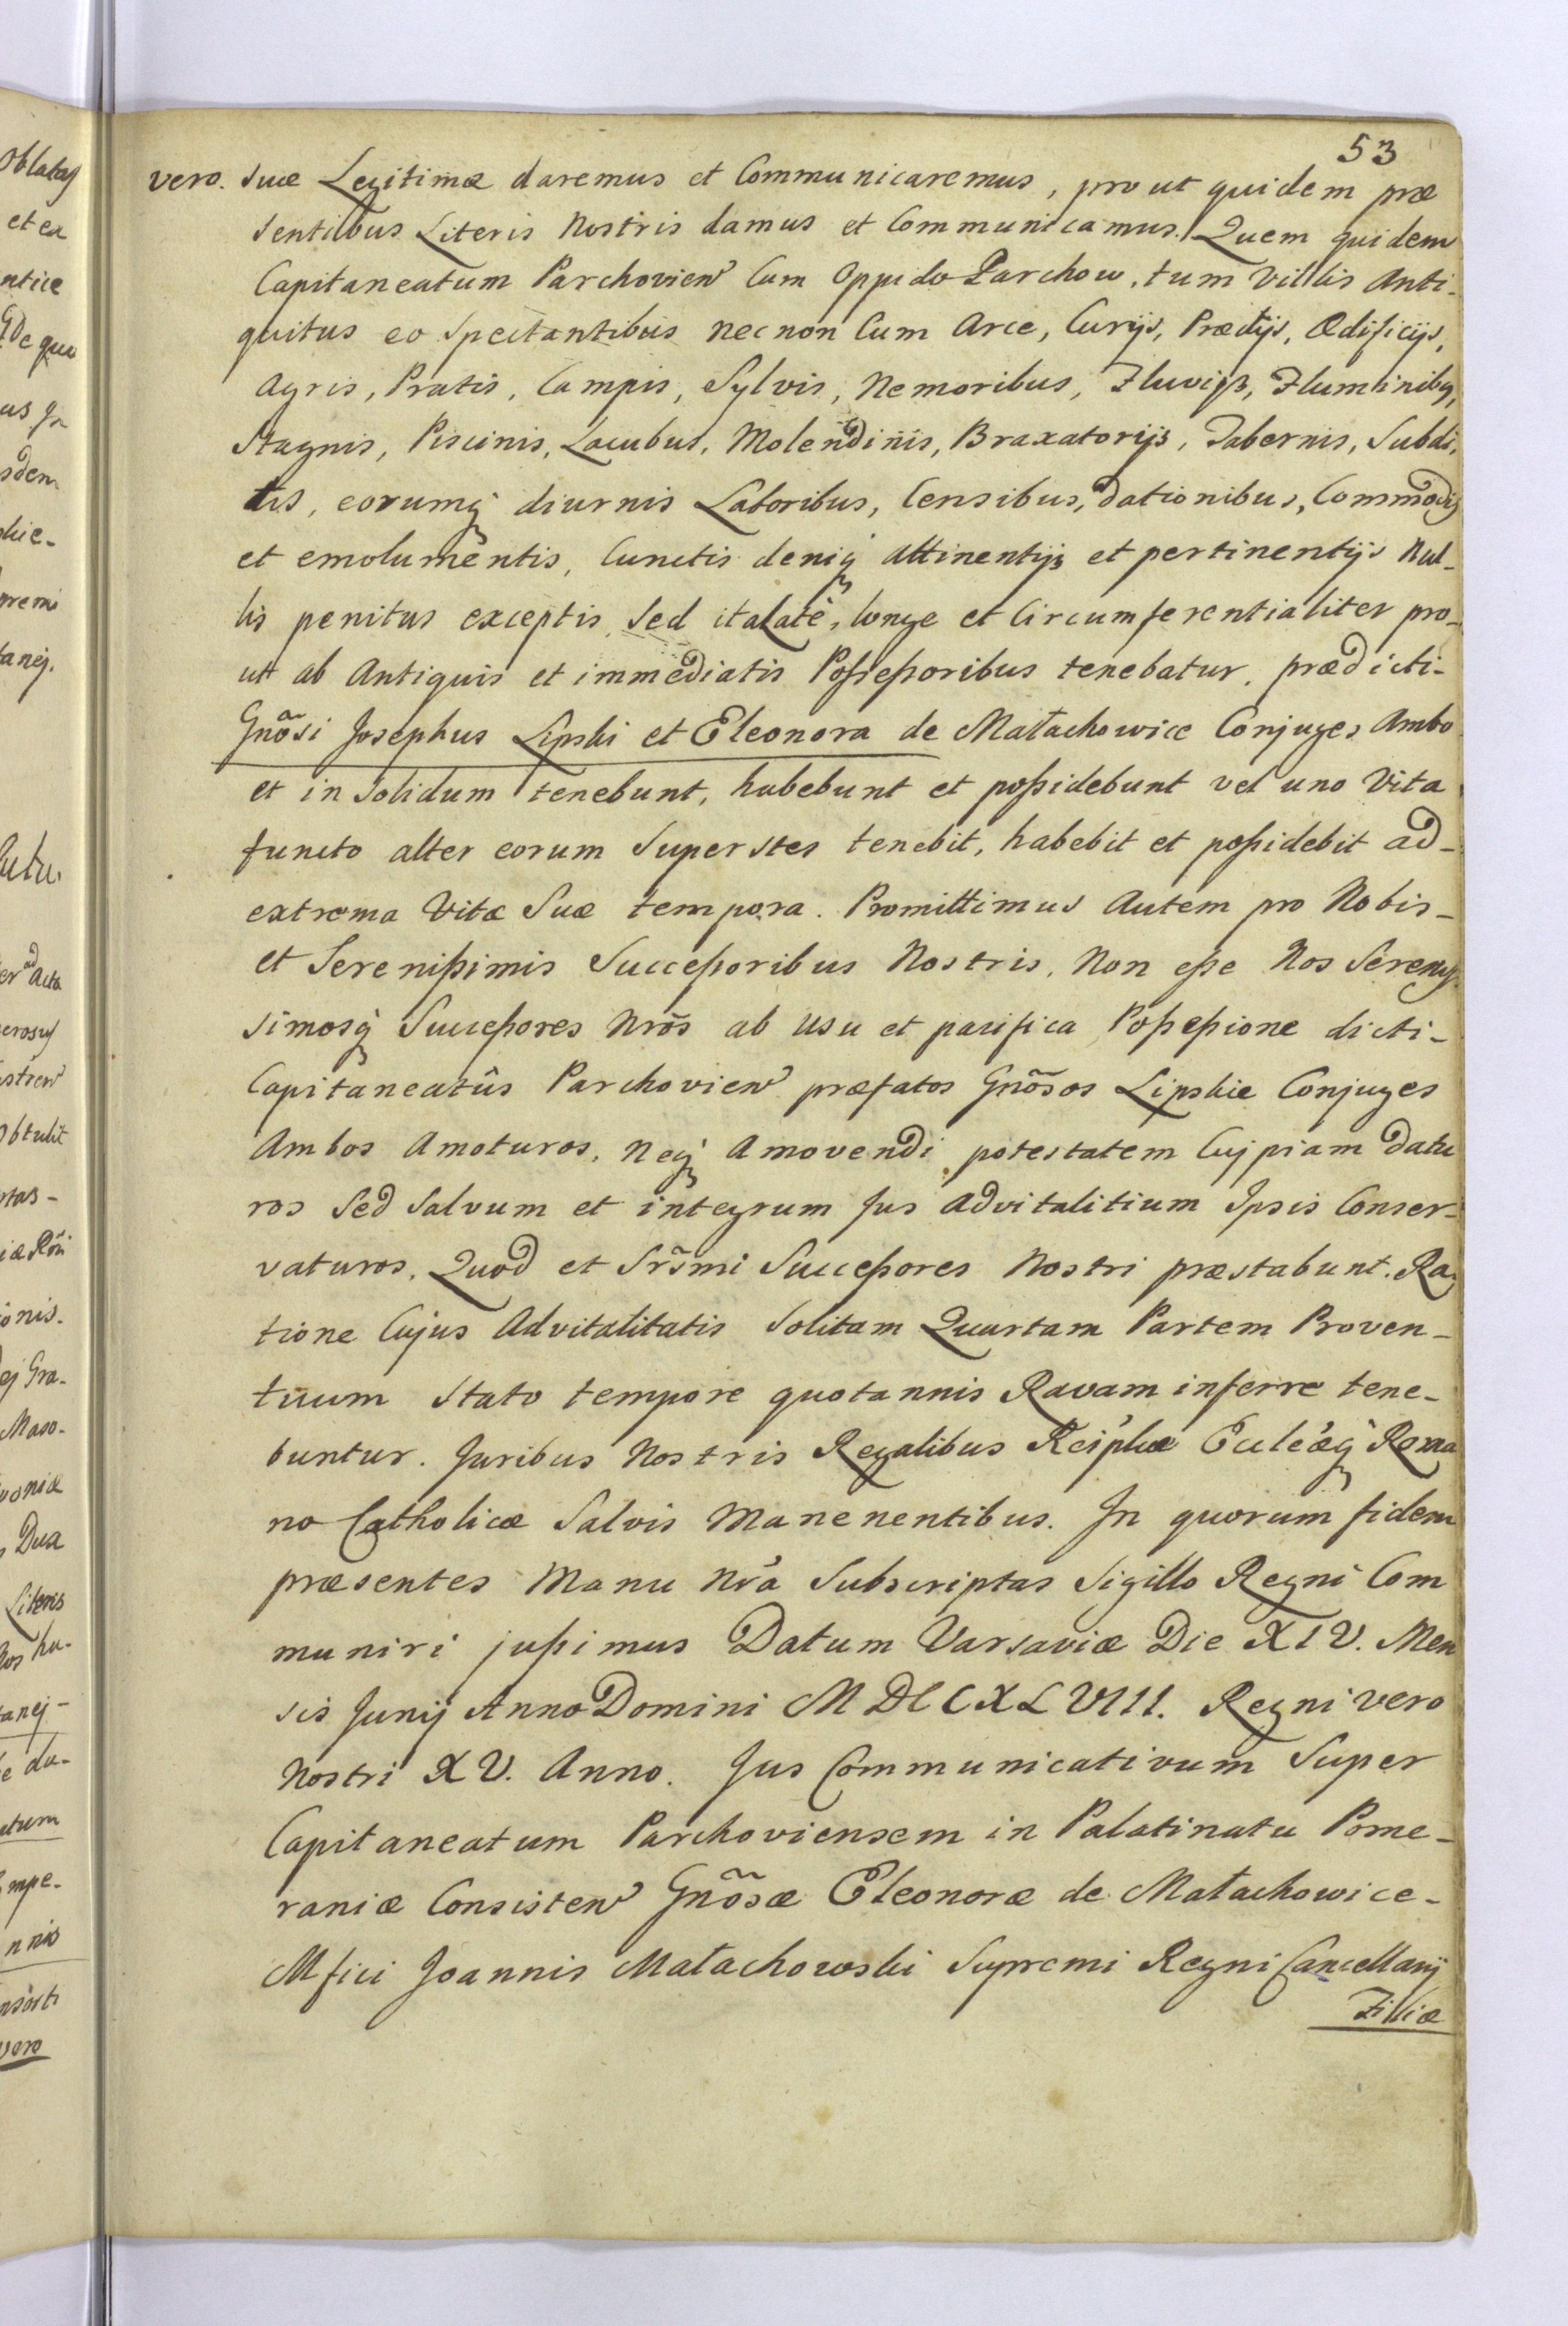 53
vero. suæ Legitimæ daremus et Communicaremus, prout quidem præ
sentibus Literis Nostris damus et Communicamus. Quem quidem
Capitaneatum Parchovien̄ Cum Oppido Parchow, tum Villis Anti-
quitus eo Spectantibus nec non Cum Arce, Curijs, Prædijs, Ædificijs,
Agris, Pratis, Campis, Sylvis, Nemoribus, Fluvijs, Fluminibq,
Stagnis, Piscinis, Lacubus, Molendinis, Braxatorijs, Tabernis, Subdi-
tis, eorumq diurnis Laboribus, Censibus, dationibus, Commodis
et emolumentis, Cunctis deniq attinentijs et pertinentijs Nul-
lis penitus exceptis, Sed ita latè, longe et Circumferentialiter pro-
ut ab Antiquis et immediatis Poßeßoribus tenebatur, prædicti-
Gnõsi Josephus Lipski et Eleonora de Małachowice Conjuges Ambo
et in Solidum tenebunt, habebunt et poßidebunt vel uno Vita
functo alter eorum Superstes tenebit, habebit et poßidebit ad-
extrema Vitæ Suæ tempora. Promittimus Autem pro Nobis-
et Serenißimis Succeßoribus Nostris, Non eße Nos Serenis-
simosq Succeßores Nrõs ab Usu et pacifica Poßeßione dicti-
Capitaneatûs Parchovien̄ præfatos Gnõsos Lipskie Conjuges
Ambos Amoturos, Neq Amovendi potestatem Cujpiam datu
ros Sed Salvum et integrum Jus advitalitium Ipsis Conser-
vaturos. Quod et Srs̃mi Succeßores Nostri præstabunt. Ra-
tione Cujus Advitalitatis Solitam Quartam Partem Proven-
tuum Stato tempore quotannis Ravam inferre tene-
buntur. Juribus Nostris Regalibus Reip̃licæ Eccleæq Roma
no Catholicæ Salvis Manenentibus. In quorum fidem
præsentes Manu Nrã Subscriptas Sigillo Regni Com
muniri jußimus Datum Varsaviæ Die XIV. Men
sis Junij Anno Domini MDCCXLVIII. Regni vero
Nostri XV. Anno. Jus Communicativum Super
Capitaneatum Parchoviensem in Palatinatu Pome-
raniæ Consisten̄ Gnõsæ Eleonoræ de Małachowice-
Mfici Joannis Małachowski Supremi Regni Cancellarij
Filiæ